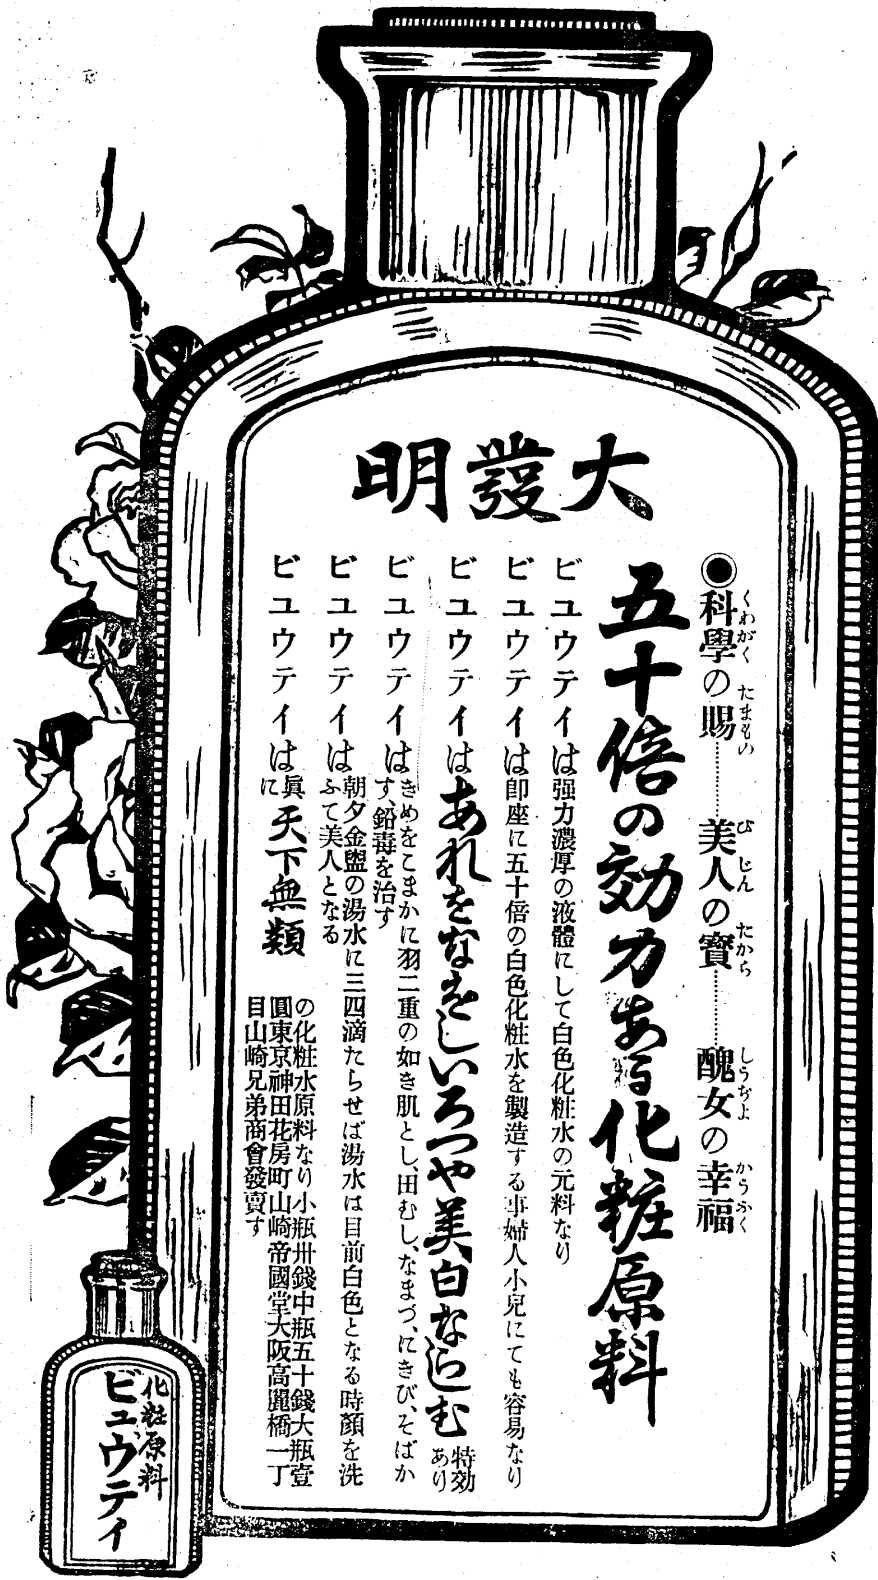 大發明
◉科學の賜……美人の寳……醜女の幸福
くわがく たまもの びじん たから しうぢよ かうふく
五十倍の効力ある化粧原料
ビユウテイは强力濃厚の液體にして白色化粧水の元料なり
ビユウテイは卽座に五十倍の白色化粧水を製造する事婦人小兒にても容易なり
ビユウテイはあれをなをしいろつや美白ならしむ特効あり
ビユウテイはきめをこまかに羽二重の如き肌とし、田むし、なまづ、にきび、そばかす、鉛毒を治す
ビユウテイは朝夕金盥の湯水に三四滴たらせば湯水は目前白色となる時顏を洗ふて美人となる
ビユウテイは眞に天下無類の化粧水原料なり小瓶卅錢中瓶五十錢大瓶壹圓東京神田花房町山崎帝國堂大阪高麗橋一丁目山崎兄弟商會發賣す
化粧原料
ビユウティ